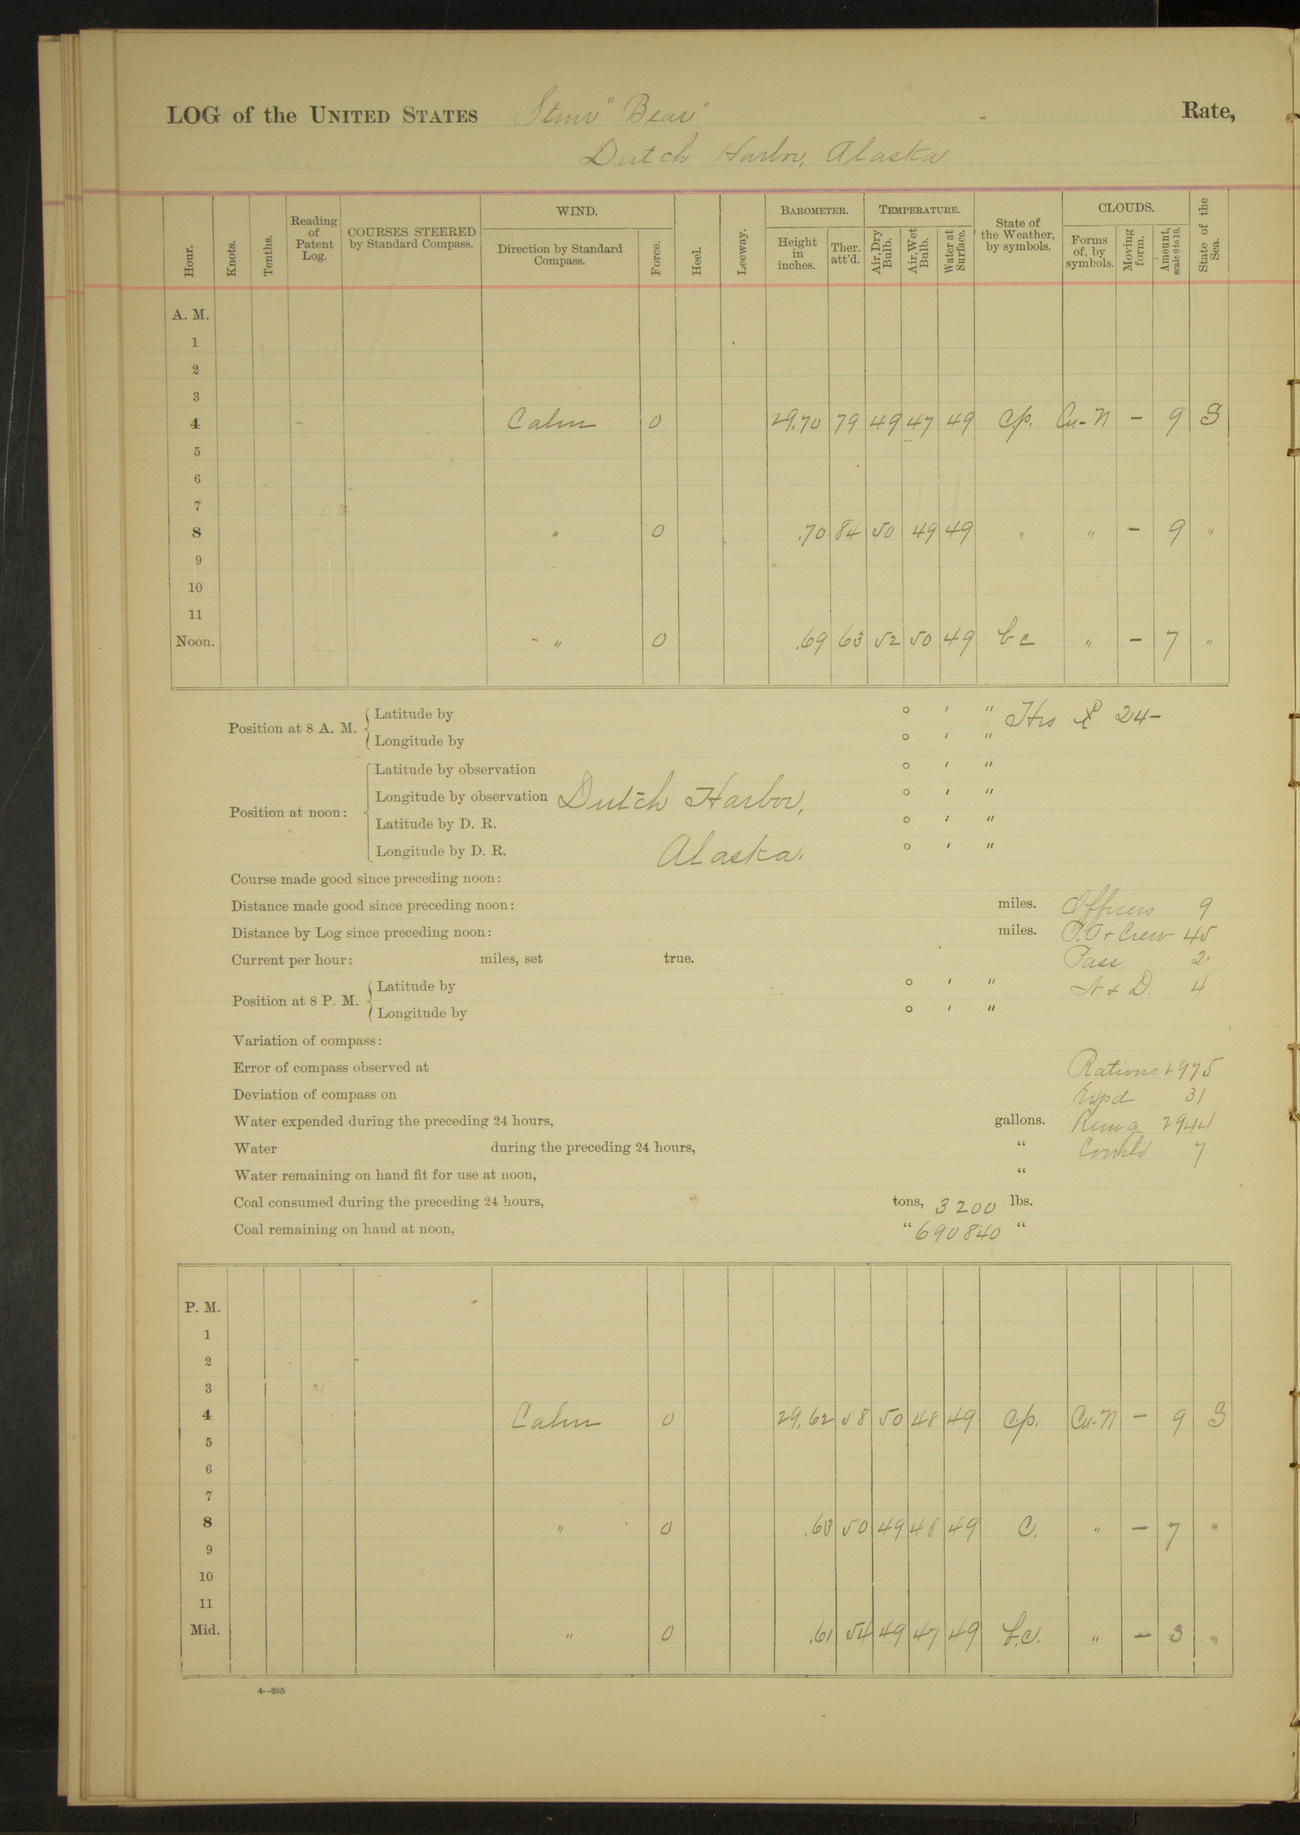 LOG of the UNITED STATES Stmr "Bear" Rate,
Dutch Harbor, Alaska.
Hour. Knots. Tenths. Reading of Patent Log. COURSES STEERED by Standard Compass. WIND. Direction by Standard Compass. Force. Heel. Leeway. BAROMETER. Height in inches. Ther. att'd. TEMPERATURE. Air, Dry Bulb. Air, Wet Bulb. Water at Surface. State of the Weather, by symbols. CLOUDS. Forms of, by symbols. Moving form. Amount, scale 0 to 10. State of the Sea.
A. M.
1
2
3
4 Calm 0 29.70 79 49 47 49 c.p. Cu-N - 9 S
5
6
7
8 " 0 .70 84 50 49 49 " " - 9 "
9
10
11
Noon. " 0 .69 63 52 50 49 bc " - 7 "
Position at 8 A. M. Latitude by ° ′ ″ Hrs 24-
Longitude by ° ′ ″
Position at noon: Latitude by observation ° ′ ″
Longitude by observation Dutch Harbor, ° ′ ″
Latitude by D. R. ° ′ ″
Longitude by D. R. Alaska. ° ′ ″
Course made good since preceding noon:
Distance made good since preceding noon: miles. Officers 9
Distance by Log since preceding noon: miles. P.O + Crew 45
Current per hour: miles, set true. Pass. 2
Position at 8 P. M. Latitude by ° ′ ″ N & D. 4
Longitude by ° ′ ″
Variation of compass:
Error of compass observed at Rations 2975
Deviation of compass on Expd 31
Water expended during the preceding 24 hours, gallons. Remg 2944
Water during the preceding 24 hours, " Comt'd 7
Water remaining on hand fit for use at noon, "
Coal consumed during the preceding 24 hours, tons, 3200 lbs.
Coal remaining on hand at noon, " 690840 "
P. M.
1
2
3
4 Calm 0 29.62 58 50 48 49 c.p. Cu-N - 9 S
5
6
7
8 " 0 .63 50 49 48 49 C. " - 7 "
9
10
11
Mid. " 0 .61 54 49 47 49 b.c. " - 3 "
4--265